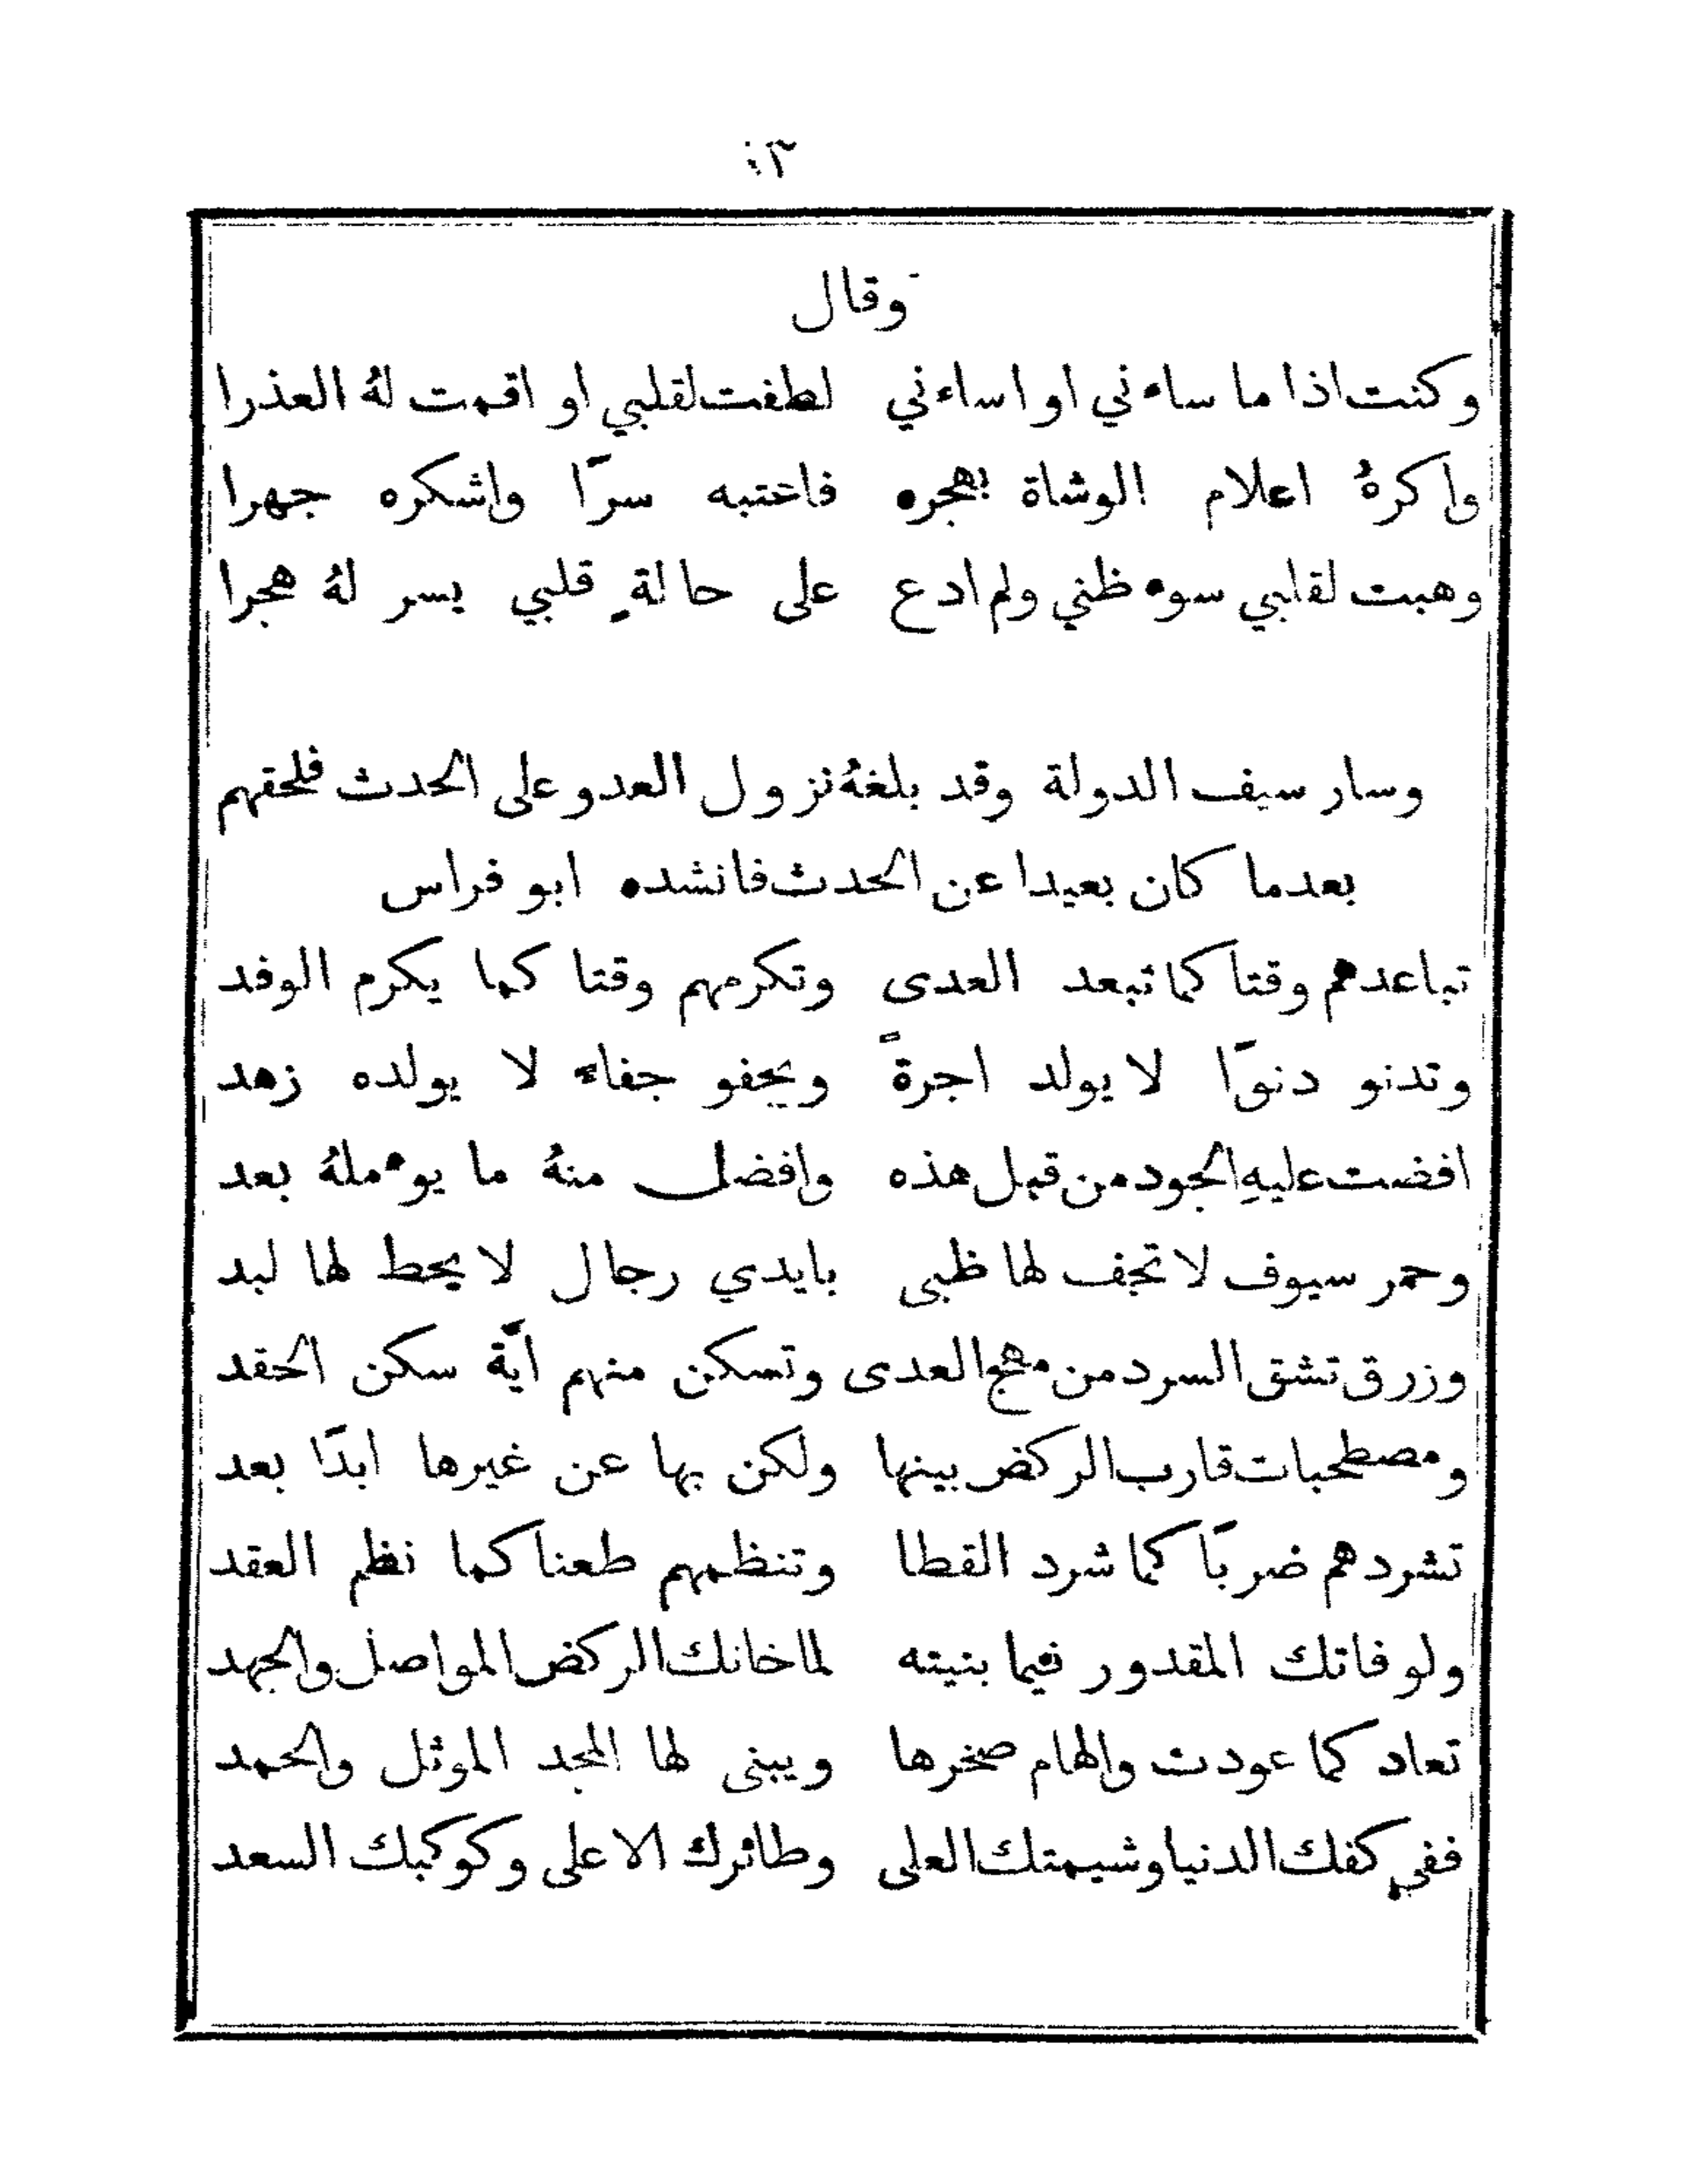 وقال
وكنت اذا ما ساءني او اساءني لطفت لقلبي او اقمت لهُ العذرا
واكرهُ اعلام الوشاة بهجره فاعتبه سرّا واشكره جهرا
وهبت لقلبي سوء ظني ولم ادع على حالةٍ قلبي يسر لهُ هجرا
وسار سيف الدولة وقد بلغهُ نزول العدو على الحدث فلحقهم
بعدما كان بعيدا عن الحدث فانشده ابو فراس
تباعدهم وقتا كما تبعد العدى وتكرمهم وقتا كما يكرم الوفد
وتدنو دنوّا لا يولد اجرةً ويجفو جفاء لا يولده زهد
افضت عليهِ الجود من قبل هذه وافضل منهُ ما يوءملهُ بعد
وحمر سيوف لا تجف لها ظبى بايدي رجال لا يحط لها لبد
وزرق تشق السرد من مهج العدى وتسكن منهم ايّة سكن الحقد
ومصطحبات قارب الركض بينها ولكن بها عن غيرها ابدًا بعد
تشردهم ضربًا كما شرد القطا وتنظمهم طعنا كما نظم العقد
ولو فاتك المقدور فيما بنيته لما خانك الركض المواصل والجهد
تعاد كما عودت والهام صخرها ويبنى لها المجد الموثل والحمد
ففي كفك الدنيا وشيمتك العلى وطائرك الاعلى وكوكبك السعد